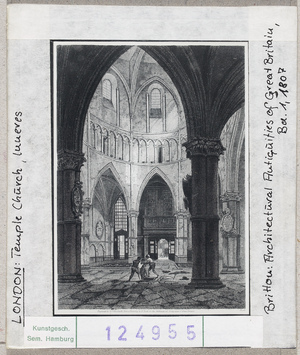 LONDON: Temple Church, Inneres
Britton: Architectural Antiquities of Great Britain,
Bd. 1, 1807
Kunstgesch.
Sem. Hamburg
124955